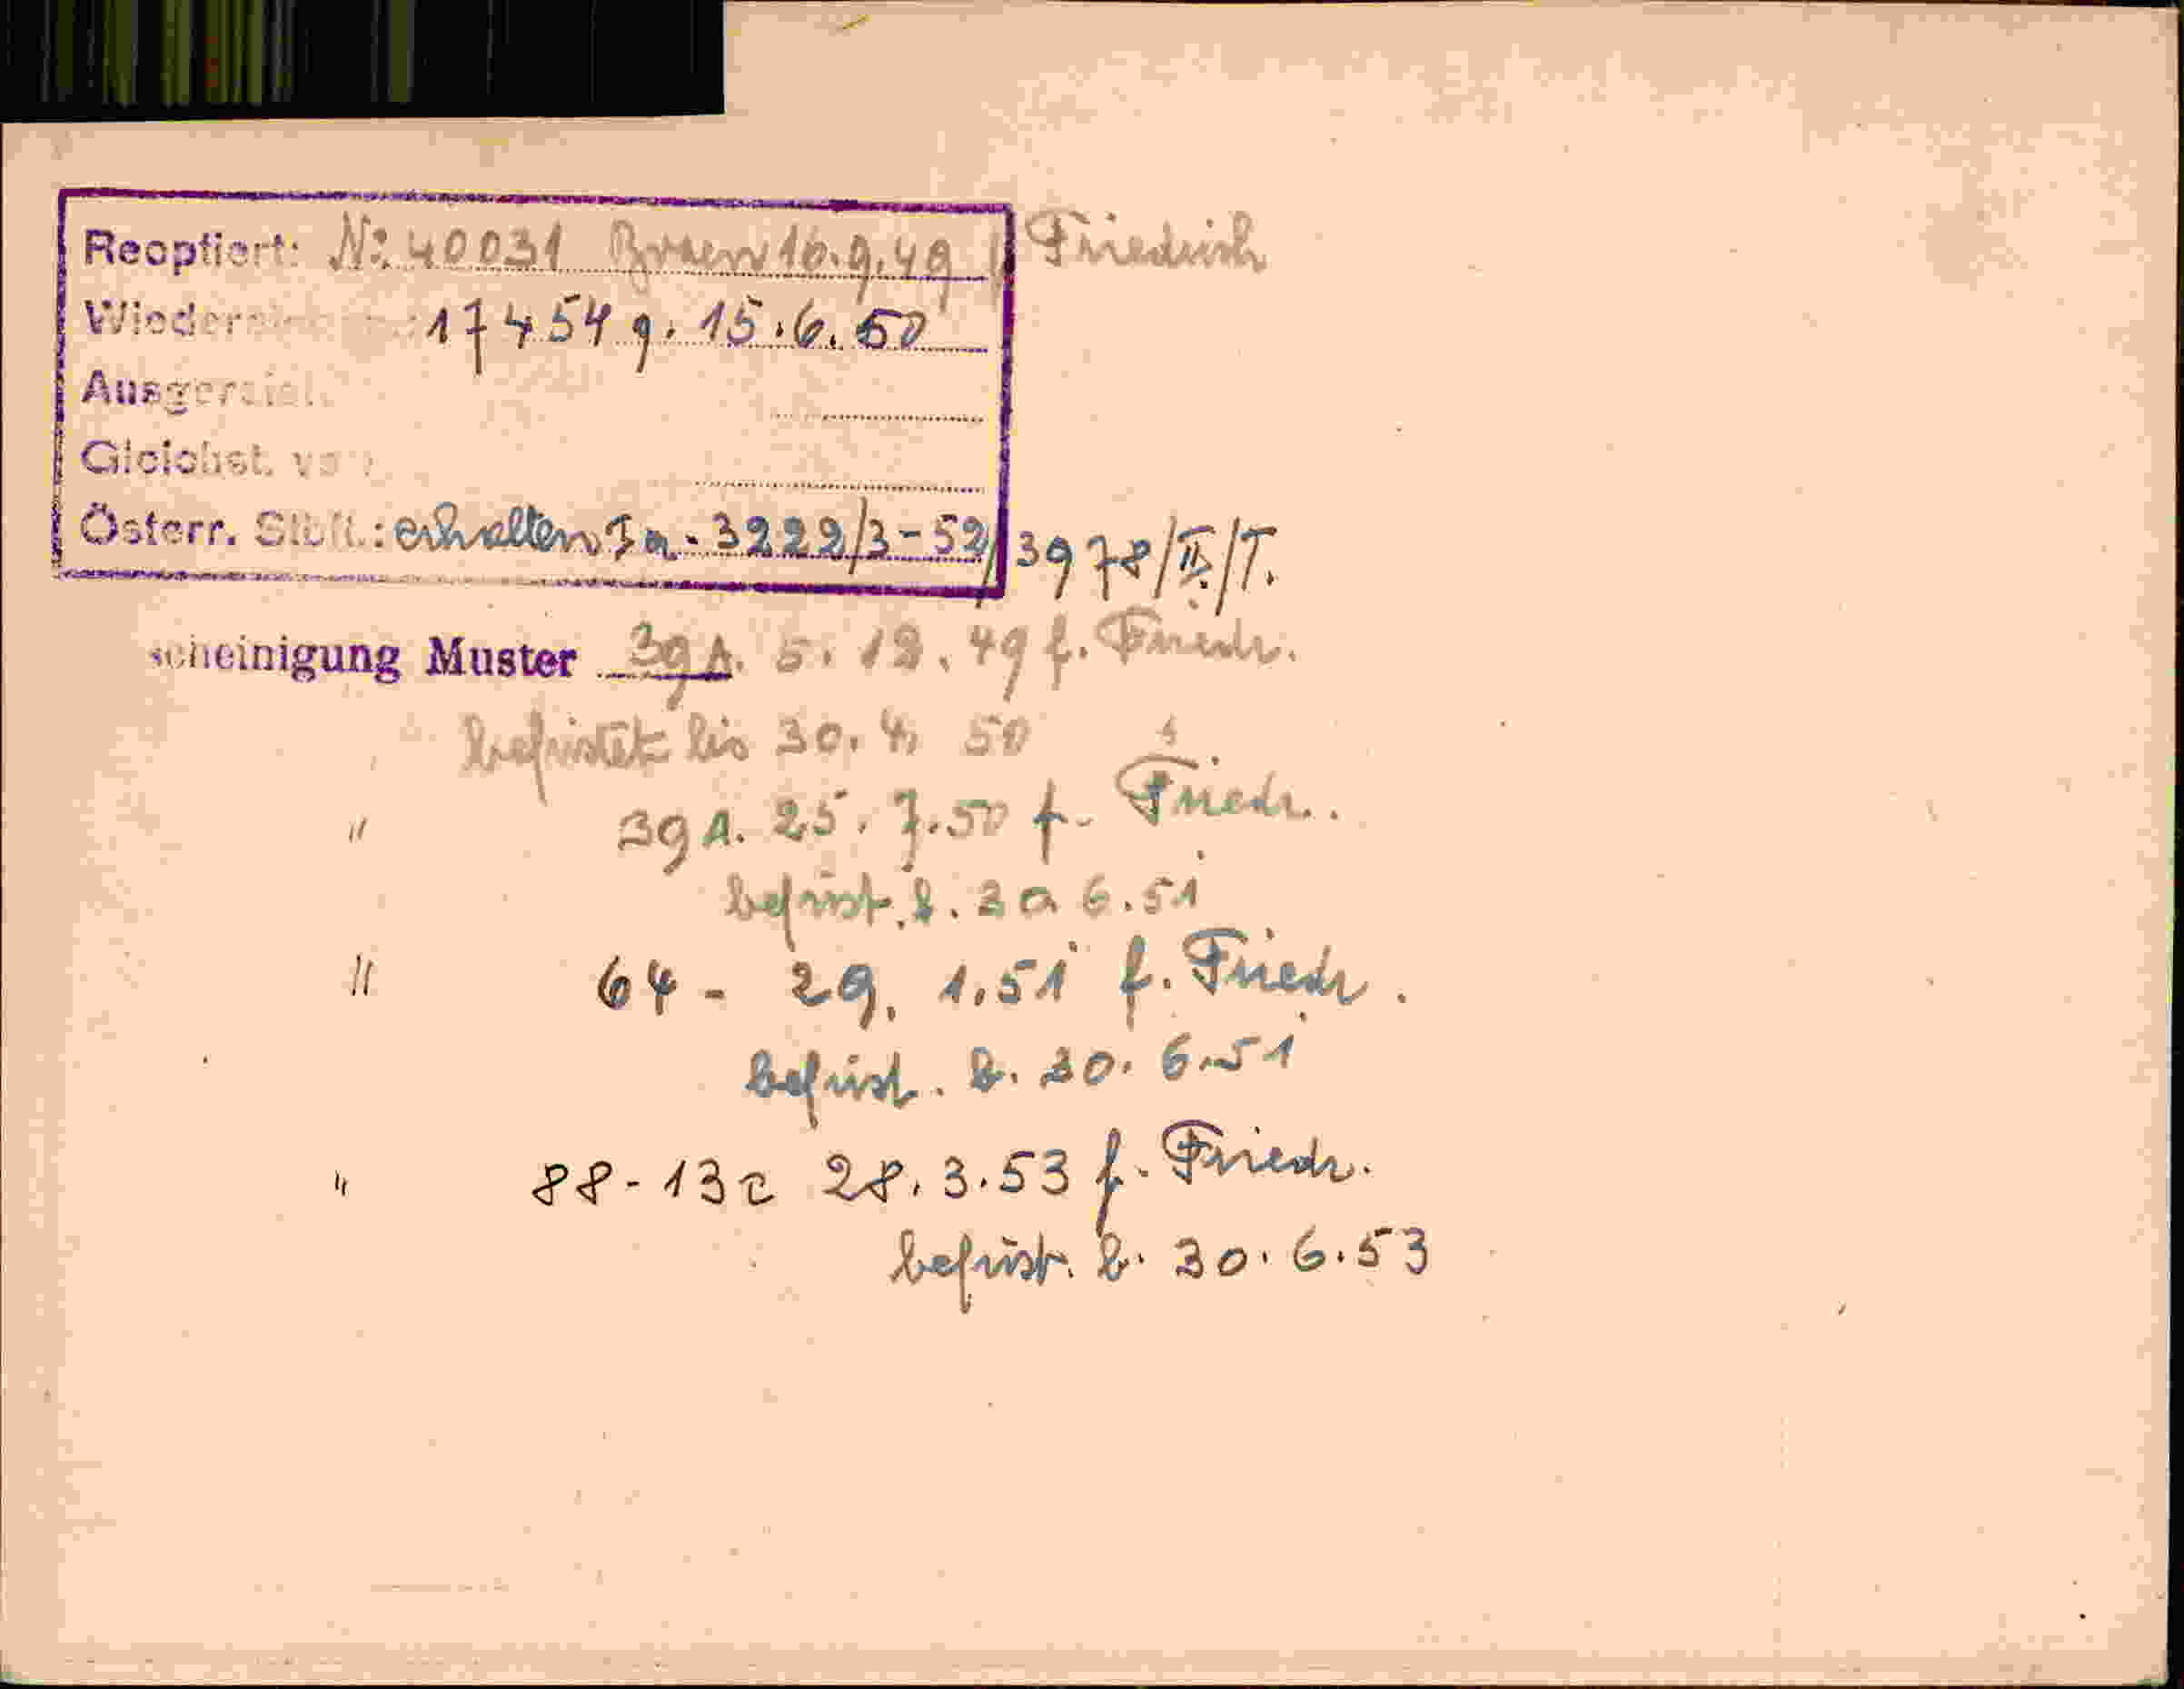 Reoptiert: No 40031 Bozen 10.9.49 Friedrich
17454 g. 15.6.50
Gleichst. von:
Österr. Stbft.: erhalten Ja. 3222/3-52/3978/II/T.
scheinigung Muster 39A. 5.12.49 f. Friedr.
befristet bis 30.4. 50
" 39A. 25.7.50 f. Friedr.
befrist. b. 30 6.51
" 64 - 29. 1.51 f. Friedr.
befrist. b. 30. 6.51
" 88-13c 28.3.53 f. Friedr.
befrist. b. 30.6.53